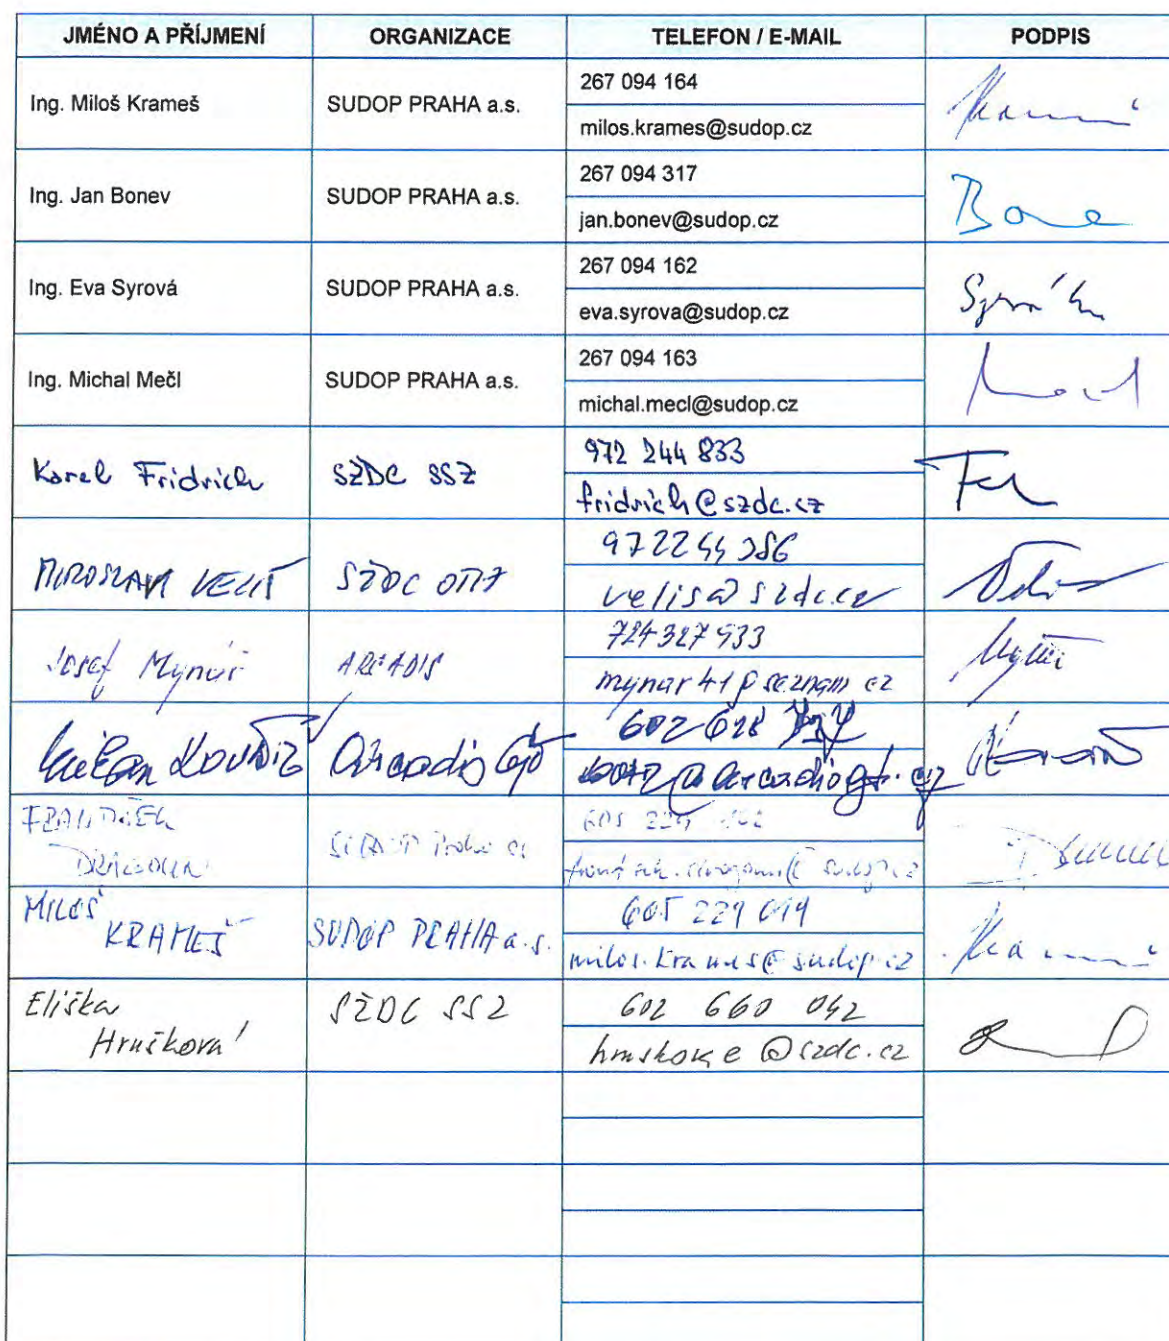 JMÉNO A PŘÍJMENÍ ORGANIZACE TELEFON / E-MAIL PODPIS
Ing. Miloš Krameš SUDOP PRAHA a.s. 267 094 164
milos.krames@sudop.cz
Ing. Jan Bonev SUDOP PRAHA a.s. 267 094 317
jan.bonev@sudop.cz
Ing. Eva Syrová SUDOP PRAHA a.s. 267 094 162
eva.syrova@sudop.cz
Ing. Michal Mečl SUDOP PRAHA a.s. 267 094 163
michal.mecl@sudop.cz
Karel Fridrich SŽDC SSZ 972 244 833
fridrich@szdc.cz
MIROSLAV VELIŠ SŽDC
velis@szdc.cz
Josef Mynář ARCADIS 724327933
Milan
602 628
FRANTIŠEK
605 229
MILOŠ
KRAMEŠ SUDOP PRAHA a.s. 605 229 019
milos.krames@sudop.cz
Eliška SŽDC SSZ 602 660 042
Hrušková
hruskove@szdc.cz